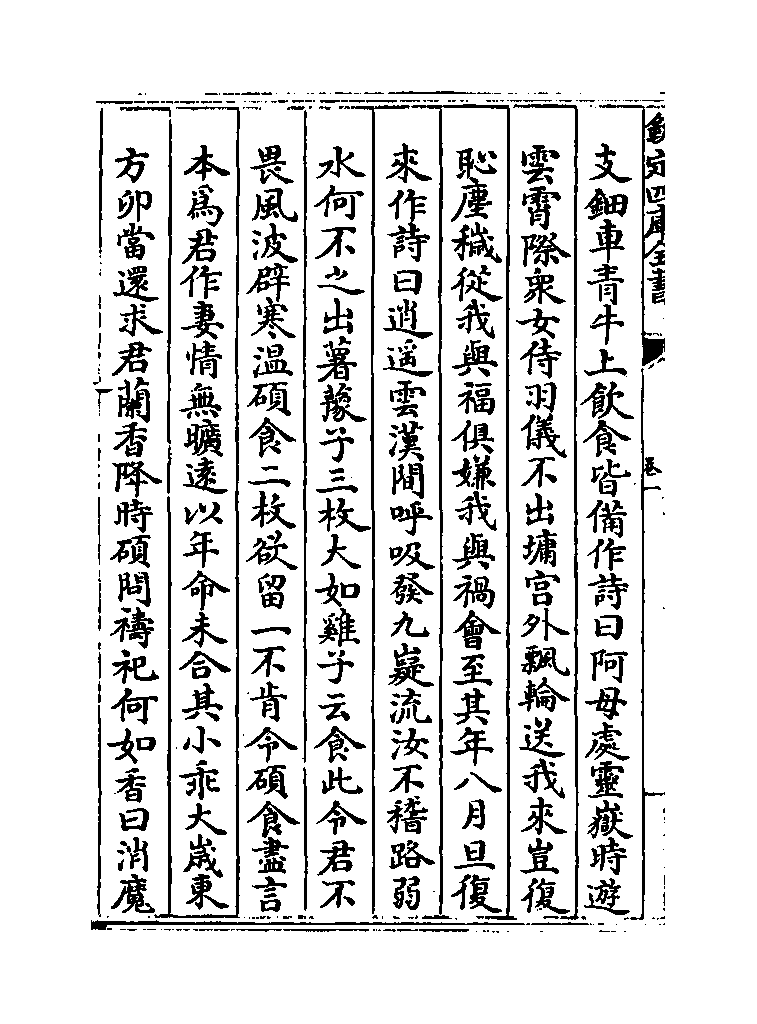 欽定四庫全書
卷一
支鈿車青牛上飲食皆備作詩曰阿母處靈嶽時遊
雲霄際衆女侍羽儀不出墉宫外飄輪送我來豈復
恥塵穢從我與福俱嫌我與禍會至其年八月旦復
來作詩曰逍遥雲漢間呼吸發九嶷流汝不稽路弱
水何不之出薯蕷子三枚大如雞子云食此令君不
畏風波辟寒温碩食二枚欲留一不肯令碩食盡言
本為君作妻情無曠逺以年命未合其小乖大嵗東
方卯當還求君蘭香降時碩問禱祀何如香曰消魔